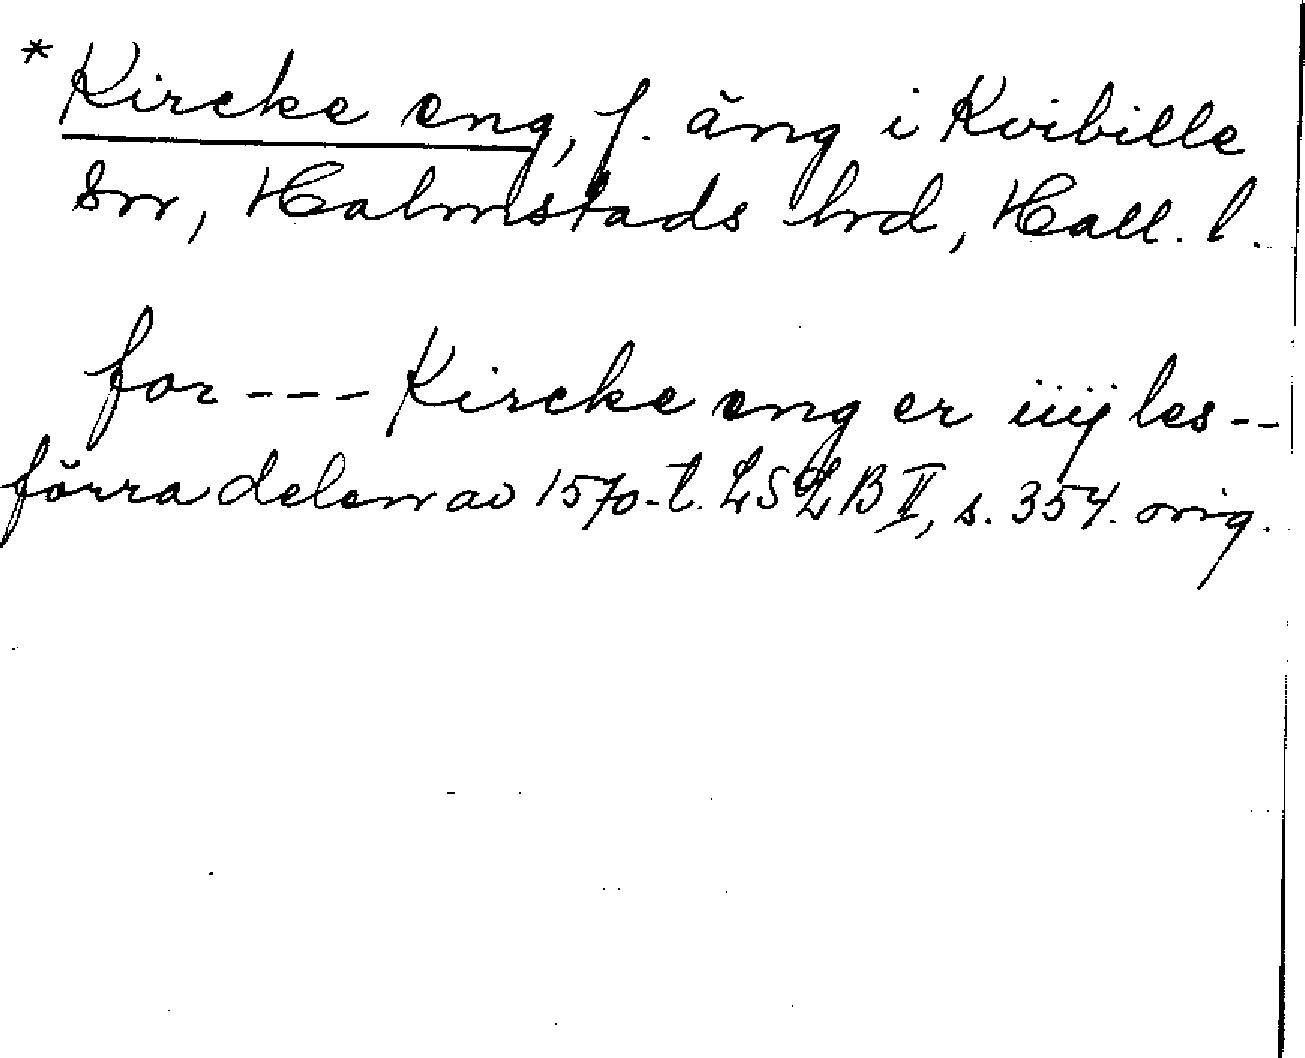 * Kircke eng, f. äng i Kvibille
sn, Halmstads hrd, Hall. l.
for --- Kircke eng er iiij les --
förra delen av 1570-t. LSLB II, s. 354. orig.